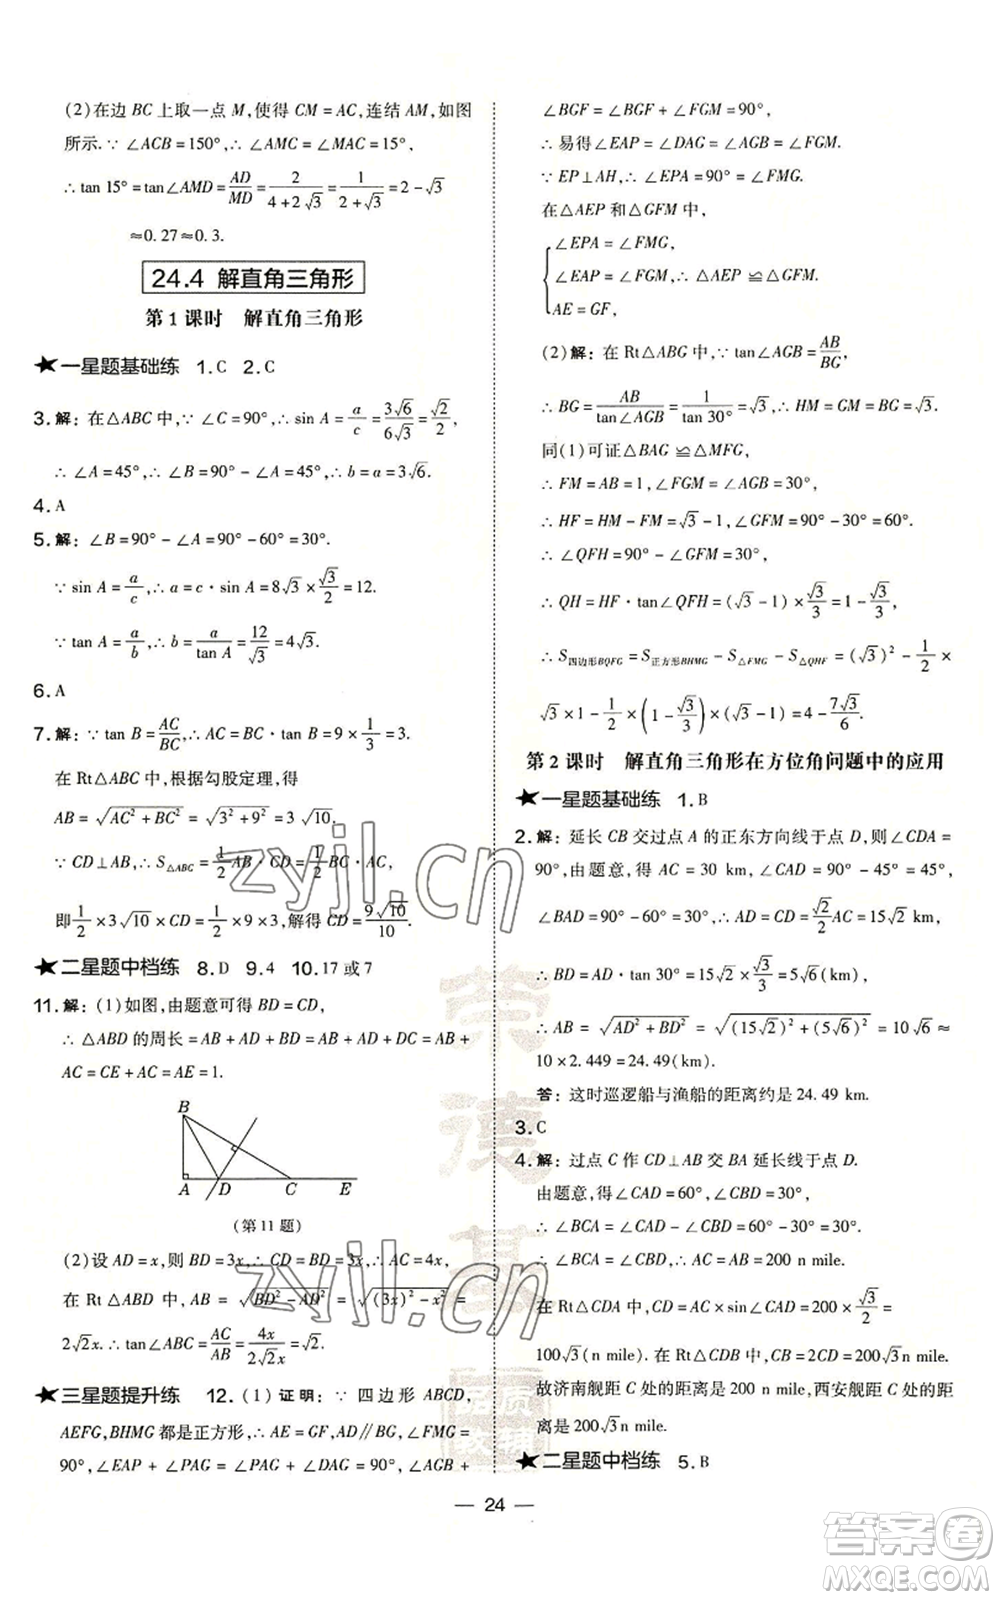 (2)在边 BC 上取一点 M,使得 CM = AC,连结 AM,如图
所示.∵ ∠ACB = 150°,∴ ∠AMC = ∠MAC = 15°,
∴ tan 15° = tan∠AMD = AD/MD = 2/(4+2√3) = 1/(2+√3) = 2 - √3
≈0.27≈0.3.
24.4 解直角三角形
第 1 课时 解直角三角形
★一星题基础练 1. C 2. C
3. 解:在△ABC 中,∵ ∠C = 90°,∴ sin A = a/c = 3√6/6√3 = √2/2,
∴ ∠A = 45°,∴ ∠B = ∠A = 45°,∴ b = a = 3√6.
4. A
5. 解:∠B = 90° - ∠A = 90° - 60° = 30°.
∵ sin A = a/c,∴ a = c · sin A = 8√3 × √3/2 = 12.
∵ tan A = a/b,∴ b = a/tan A = 12/√3 = 4√3.
6. A
7. 解:∵ tan B = AC/BC,∴ AC = BC · tan B = 9 × 1/3 = 3.
在 Rt△ABC 中,根据勾股定理,得
AB = √(AC² + BC²) = √(3² + 9²) = 3√10.
∵ CD⊥AB,∴ S△ABC = 1/2 AB · CD = 1/2 BC · AC,
即 1/2 × 3√10 × CD = 1/2 × 9 × 3,解得 CD = 9√10/10.
★二星题中档练 8. D 9. 4 10. 17 或 7
11. 解:(1)如图,由题意可得 BD = CD,
∴ △ABD 的周长 = AB + AD + BD = AB + AD + DC = AB +
AC = CE + AC = AE = 1.
B
A D C E
(第 11 题)
(2)设 AD = x,则 BD = 3x,∴ CD = BD = 3x,∴ AC = 4x,
在 Rt △ABD 中,AB = √(BD² - AD²) = √((3x)² - x²) =
2√2x.∴ tan∠ABC = AC/AB = 4x/2√2x = √2.
★三星题提升练 12. (1)证明:∵ 四边形 ABCD,
AEFG,BHMG 都是正方形,∴ AG = GF,∠PAG = ∠AGF =
90°,∠EAP + ∠PAG = ∠PAG + ∠GAB = 90°,∠AGB +
∠BGF = ∠BGF + ∠FGM = 90°,
∴ 易得∠EAP = ∠FGM.
∵ EP⊥AH,∴ ∠EPA = 90° = ∠FMG.
在△AEP 和△GFM 中,
∠EPA = ∠FMG,
∠EAP = ∠FGM,∴ △AEP ≌△GFM.
AE = GF,
(2)解:在 Rt△ABG 中,∵ tan∠AGB = AB/BG,
∴ BG = AB/tan∠AGB = 1/tan 30° = √3,∴ HM = GM = BG = √3.
同(1)可证△BAG ≌△MFG,
∴ FM = AB = 1,∠FGM = ∠AGB = 30°,
∴ HF = HM - FM = √3 - 1,∠GFM = 90° - 30° = 60°.
∴ ∠QFH = 90° - ∠GFM = 30°,
∴ QH = HF · tan∠QFH = (√3 - 1) × √3/3 = 1 - √3/3,
∴ S四边形BQFG = S正方形BHMG - S△FMG - S△QHF = (√3)² - 1/2 ×
√3 × 1 - 1/2 × (1 - √3/3) × (√3 - 1) = 4 - 7√3/6.
第 2 课时 解直角三角形在方位角问题中的应用
★一星题基础练 1. B
2. 解:延长 CB 交过点 A 的正东方向线于点 D,则∠CDA =
90°,由题意,得 AC = 30 km,∠CAD = 90° - 45° = 45°,
∠BAD = 90° - 60° = 30°,∴ AD = CD = √2/2 AC = 15√2 km,
∴ BD = AD · tan 30° = 15√2 × √3/3 = 5√6(km),
∴ AB = √(AD² + BD²) = √((15√2)² + (5√6)²) = 10√6 ≈
10 × 2.449 = 24.49(km).
答:这时巡逻船与渔船的距离约是 24.49 km.
3. C
4. 解:过点 C 作 CD⊥AB 交 BA 延长线于点 D.
由题意,得∠CAD = 60°,∠CBD = 30°,
∴ ∠BCA = ∠CAD - ∠CBD = 60° - 30° = 30°,
∴ ∠BCA = ∠CBD,∴ AC = AB = 200 n mile.
在 Rt△CDA 中,CD = AC × sin∠CAD = 200 × √3/2 =
100√3(n mile).在 Rt△CDB 中,CB = 2CD = 200√3 n mile.
故济南舰距 C 处的距离是 200 n mile,西安舰距 C 处的
距离是 200√3 n mile.
★二星题中档练 5. B
— 24 —
zyjl.cn
zyjl.cn
荣德基
品质
教辅
答案卷
MXQE.COM